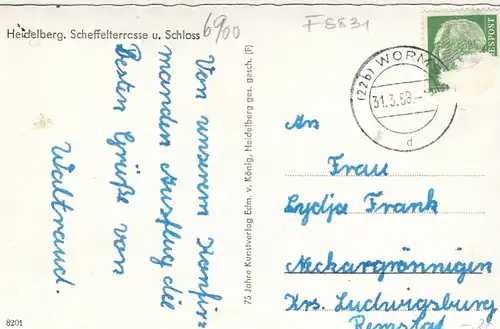 Heidelberg. Scheffelterrasse u. Schloss
6900
F8831
(22b) WORMS
31.3.58.
d
Von unserem Konfir=
manden Ausflug die
Besten Grüße von
Waltraud.
75 Jahre Kunstverlag Edm. v. König, Heidelberg ges. gesch. (F)
An
Frau
Lydja Frank
Neckargrönnigen
Krs. Ludwigsburg
Remstal
8201